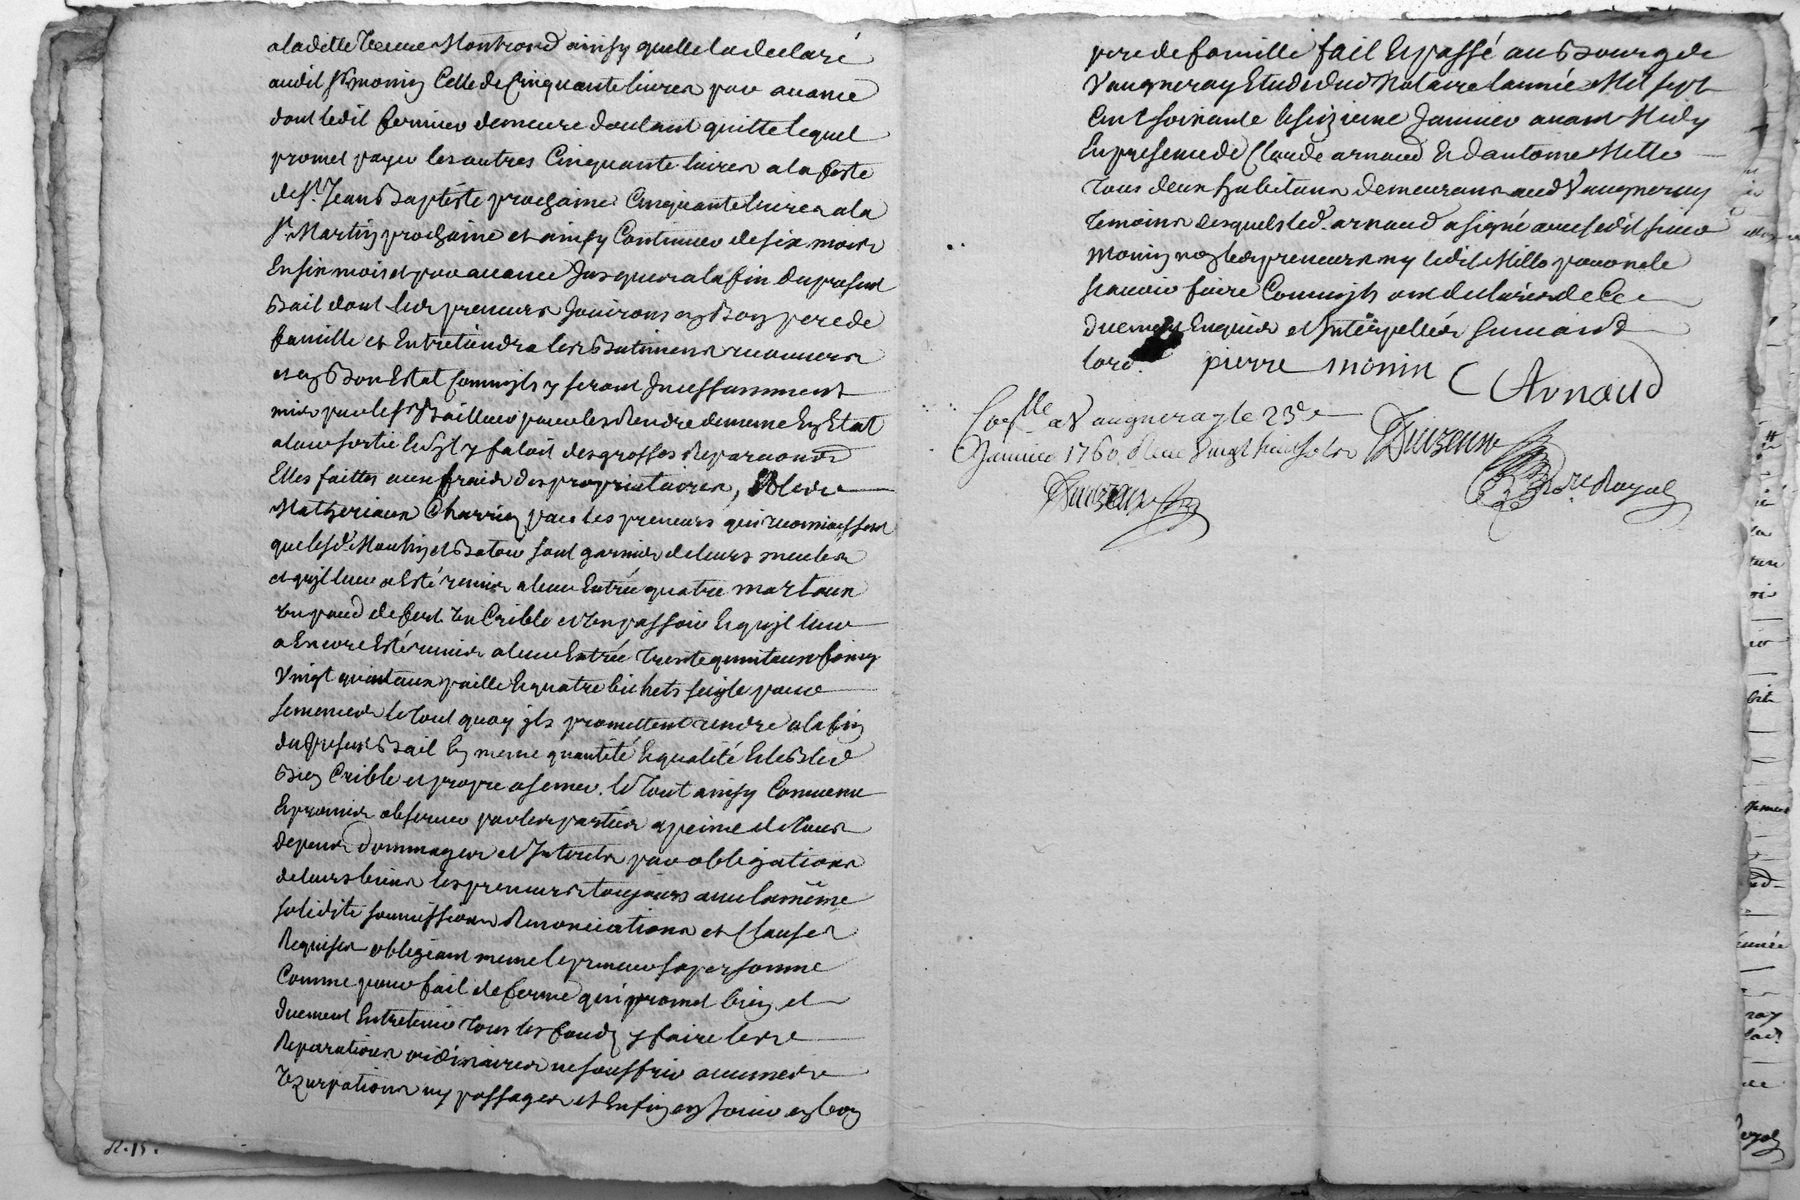 a ladette veuve Montrond ainsy quelle la declaré
audit Sr. monin Celle de Cinquante livres par avance
dont ledit fermier demeure d'autant quitte lequel
promet payer les autres Cinquante livres a la feste
de St. Jean Baptiste prochaine Cinquante livres a la
St. Martin prochaine et ainsy Continuer de six mois
En six mois et par avance Jusques a la fin du present
Bail dont les preneurs Jouirons en Bon pere de
famille et Entretiendra les Batimens
et en Bon Estat Comm'ils y seront Incessamment
mis par led. Sr. Bailleur pour les Rendre de meme En Etat
a leur sortie Et s'il y faloit des grosses Reparations
Elles faittes aux fraix des proprietaires,
Matheriaux Charriez par les preneurs qui reconnoissent
que lesd. Moulin et Batoir sont garnis de leurs meules
et qu'il leur a Esté remis a leur Entrée quatre martaux
un paud de fert un Crible et un passoir Et qu'il leur
a Encore Esté remis a leur Entrée trente quintaux foing
Vingt quintaux paille Et quatre bichets seigle pour
semences le tout quoy ils promettent rendre a la fin
du present Bail En meme quantité Et qualité Et le Bled
Bien Crible et propre a semer. le tout ainsy Convenu
Et promis observer par les parties a peine de tous
depens Dommages et Interets par obligations
de leurs biens les preneurs toujours avec la même
solidité soumissions Renonciations et Clauses
Requises obligeant meme le preneur sa personne
Comme pour fait de ferme qui promet bien et
duement Entretenir tous les fonds y faire les
Reparations ordinaires ne souffrir aucunes
Uzurpations ny passages et Enfin en Jouir en bon
R. 15.
pere de famille fait Et passé au Bourg de
Vaugneray Etude dud Notaire l'année Mil sept
Cent soixante le seizieme Janvier avant Midy
En presence de Claude arnaud Et d'antoine Mille
tous deux habitans demeurans aud Vaugneray
temoins desquels led. arnaud a signé avec ledit sieur
Monin non les preneurs ny ledit Mille pour ne le
scavoir faire Comm'ils ont declarés de Ce
duement Enquis et Interpellés suivant
lord.
pierre monin C Arnaud
Con.lle a Vaugneray le 23e
Janvier 1760
Nore. Royal